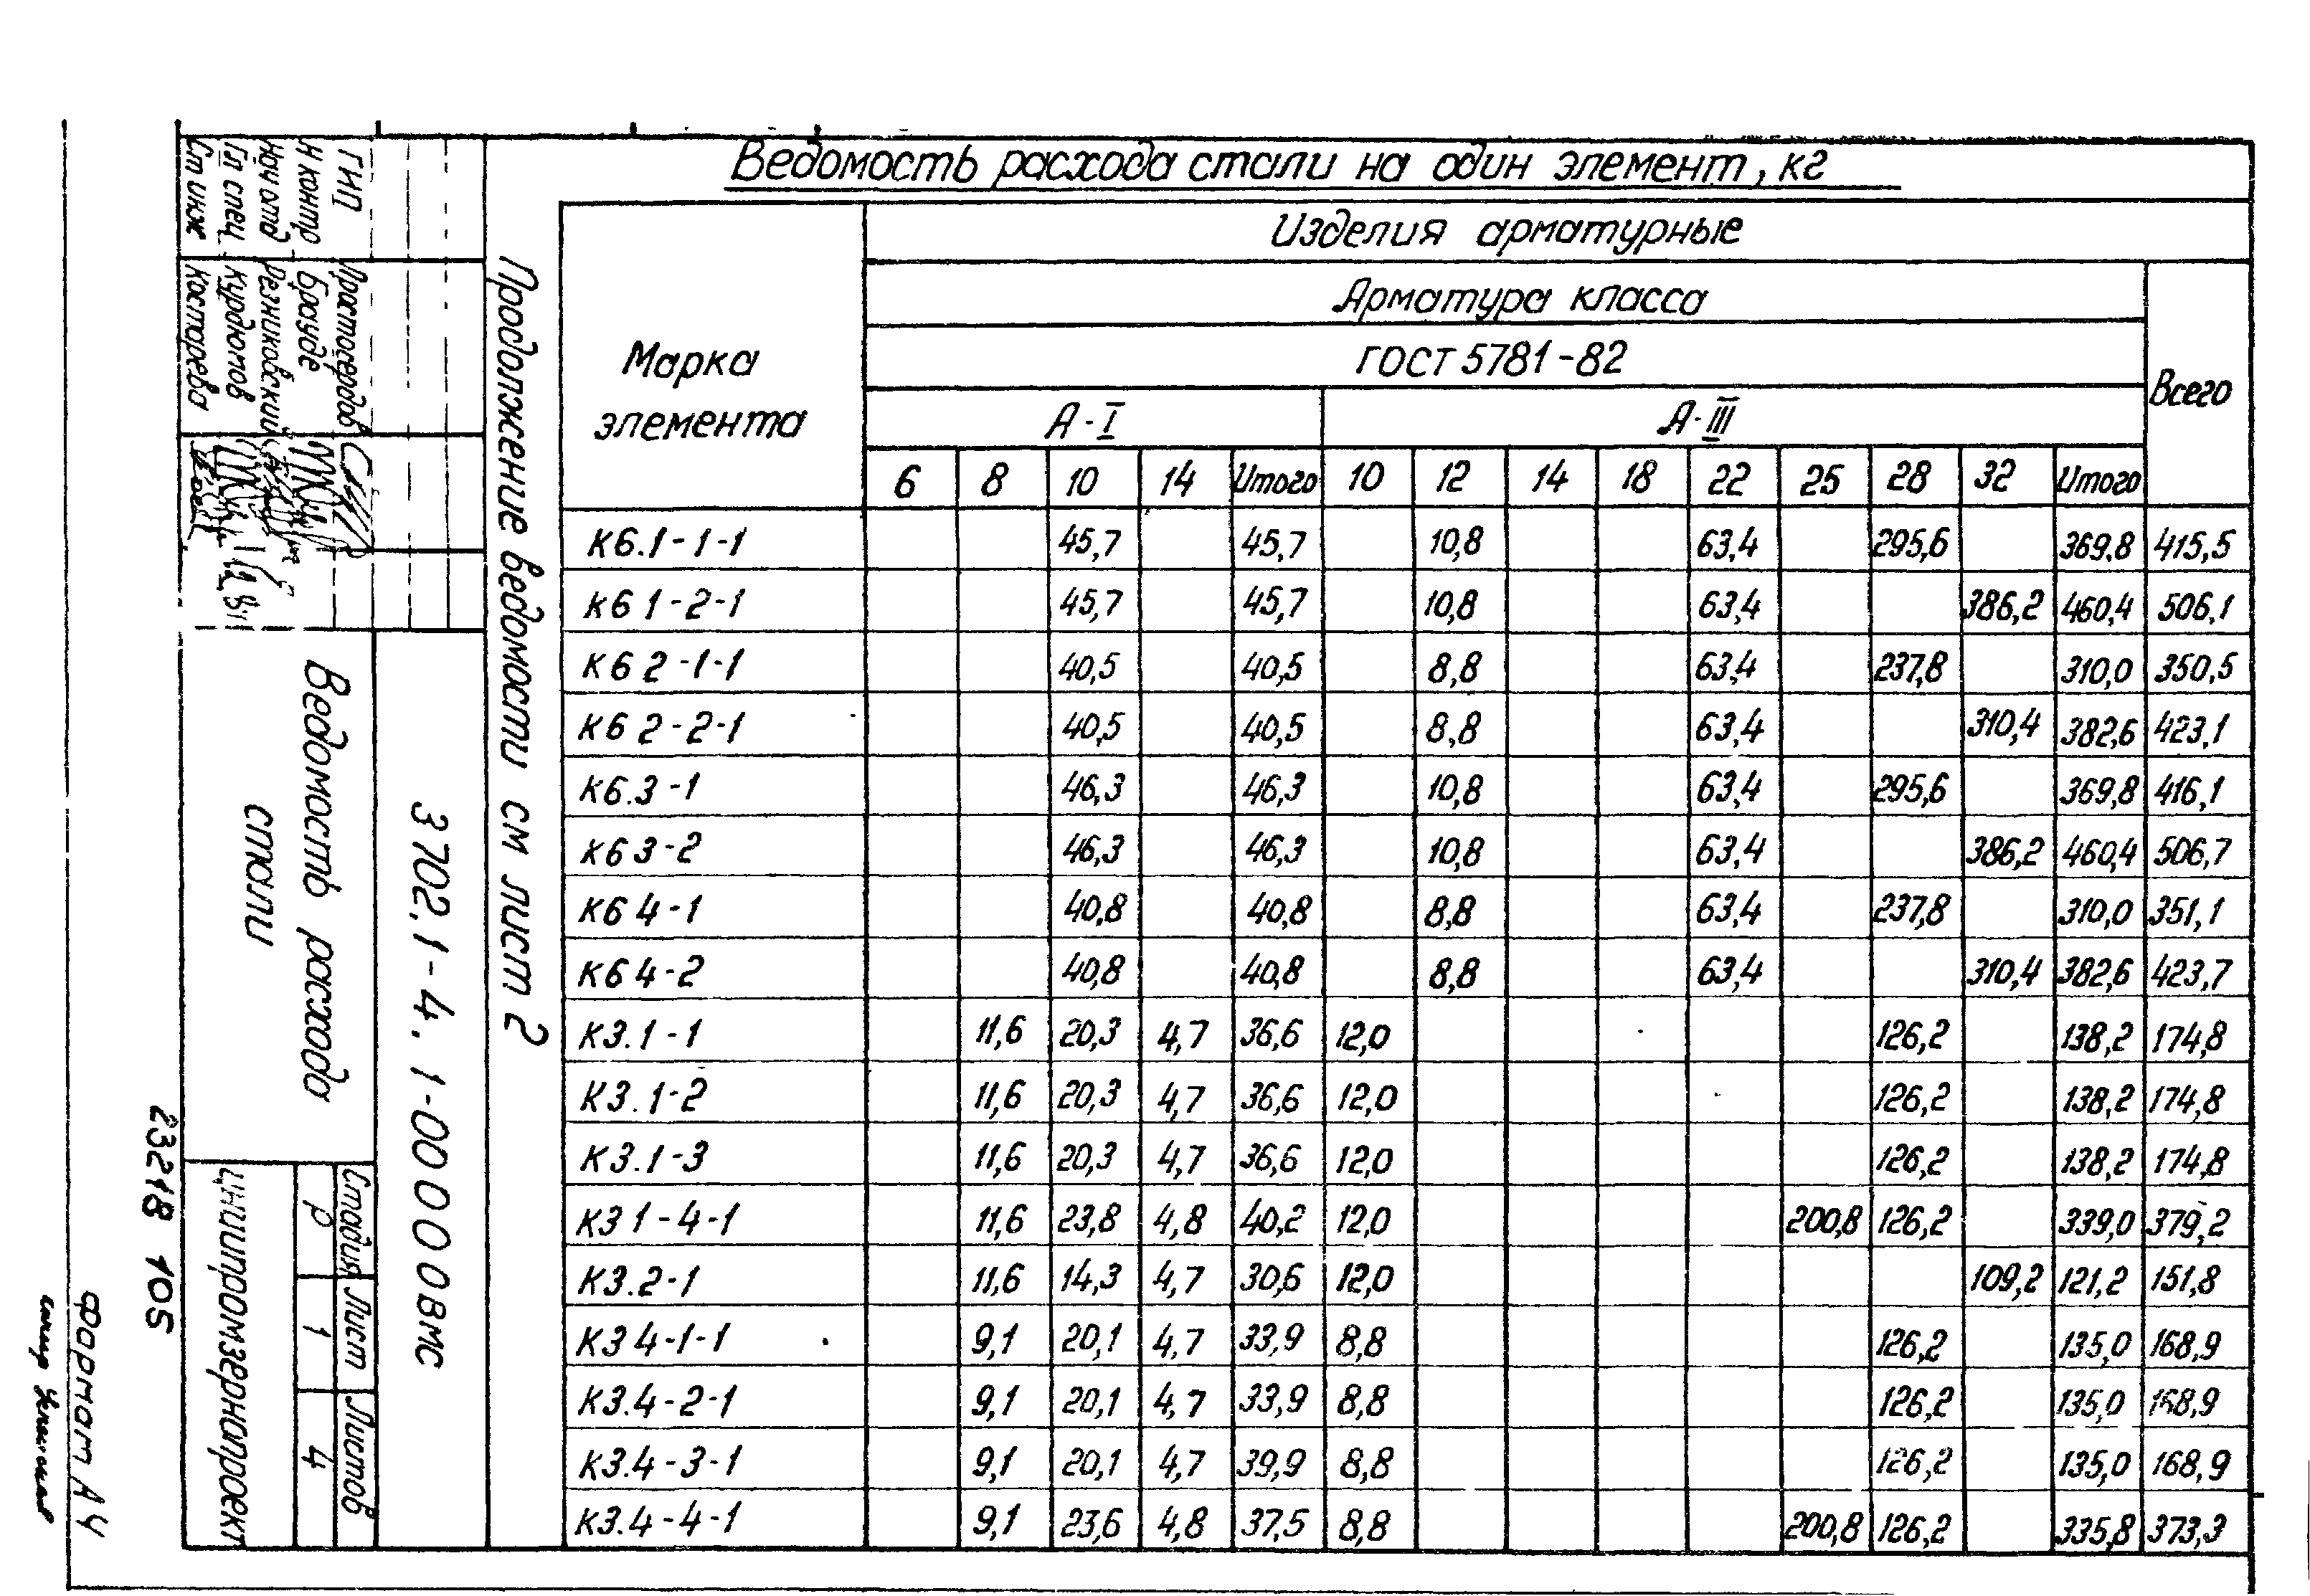 Ведомость расхода стали на один элемент, кг
Марка элемента
Изделия арматурные
Арматура класса
ГОСТ 5781-82
Всего
А-I А-III
6 8 10 14 Итого 10 12 14 18 22 25 28 32 Итого
К6.1-1-1 45,7 45,7 10,8 63,4 295,6 369,8 415,5
К6 1-2-1 45,7 45,7 10,8 63,4 386,2 460,4 506,1
К6 2-1-1 40,5 40,5 8,8 63,4 237,8 310,0 350,5
К6 2-2-1 40,5 40,5 8,8 63,4 310,4 382,6 423,1
К6.3-1 46,3 46,3 10,8 63,4 295,6 369,8 416,1
К6 3-2 46,3 46,3 10,8 63,4 386,2 460,4 506,7
К6 4-1 40,8 40,8 8,8 63,4 237,8 310,0 351,1
К6 4-2 40,8 40,8 8,8 63,4 310,4 382,6 423,7
К3.1-1 11,6 20,3 4,7 36,6 12,0 126,2 138,2 174,8
К3.1-2 11,6 20,3 4,7 36,6 12,0 126,2 138,2 174,8
К3.1-3 11,6 20,3 4,7 36,6 12,0 126,2 138,2 174,8
К3 1-4-1 11,6 23,8 4,8 40,2 12,0 200,8 126,2 339,0 379,2
К3.2-1 11,6 14,3 4,7 30,6 12,0 109,2 121,2 151,8
К3 4-1-1 9,1 20,1 4,7 33,9 8,8 126,2 135,0 168,9
К3.4-2-1 9,1 20,1 4,7 33,9 8,8 126,2 135,0 168,9
К3.4-3-1 9,1 20,1 4,7 39,9 8,8 126,2 135,0 168,9
К3.4-4-1 9,1 23,6 4,8 37,5 8,8 200,8 126,2 335,8 373,3
Продолжение ведомости см лист 2
3 702.1-4. 1-00 0 0 0 0ВМС
ГИП Простосердов
Н контр Брауде
Нач отд Резниковский
Гл спец Курдюмов
Ст инж Костарева
Ведомость расхода
стали
Стадия Лист Листов
Р 1 4
ЦНИИпромзернопроект
23218 105
Формат А4